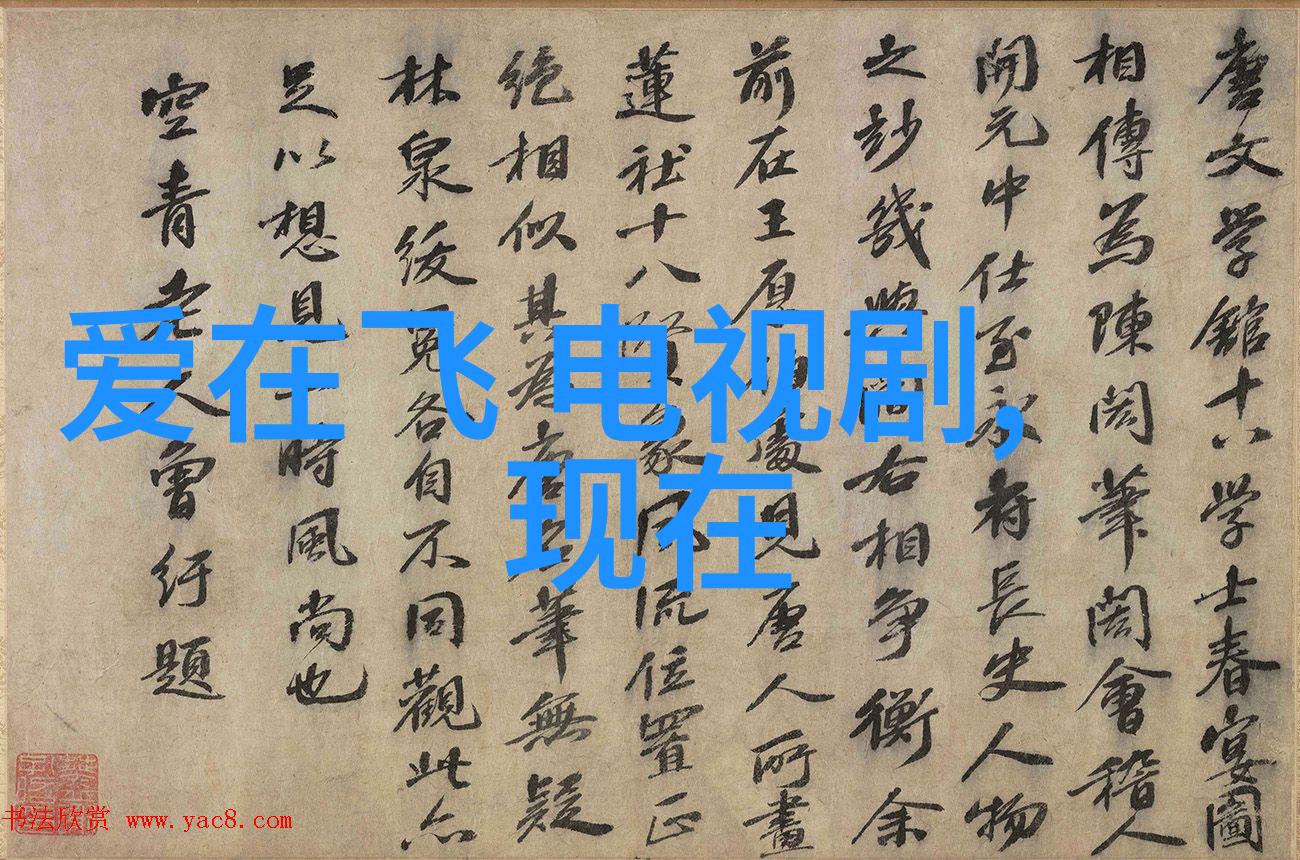 唐文学館十八学士春宴圖
相傳為陳閎筆閎會稽人
開元中仕至永府長史人物
之妙幾與閻右相爭衡余
前在王原處見唐人所畫
蓮社十八賢象風流位置正
絶相似其為唐名筆無疑
林泉冕各自不同觀此亦
足以想見一時風尚也
空青老人曾紆題
爱在飞 电视剧,
现在
书法欣赏 www.yac8.com